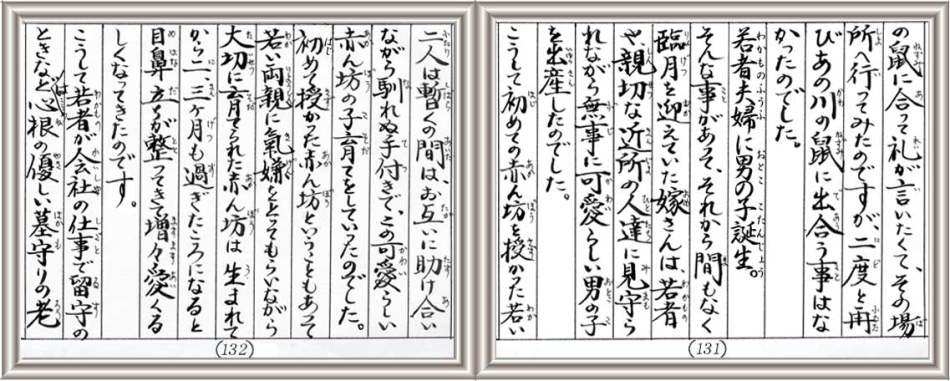 の鼠に合って礼が言いたくて、その場
所へ行ってみたのですが、二度と再
びあの川の鼠に出合う事はな
かったのでした。
若者夫婦に男の子誕生。
そんな事があって、それから間もなく
臨月を迎えていた嫁さんは、若者
や親切な近所の人達に見守ら
れながら無事に可愛らしい男の子
を出産したのでした。
こうして初めての赤ん坊を授かった若い
(131)
二人は暫くの間は、お互いに助け合い
ながら馴れぬ手付きで、この可愛らしい
赤ん坊の子育てをしていったのでした。
初めて授かった赤ん坊ということもあって
若い両親に氣嫌をとってもらいながら
大切に育てられた赤ん坊は生まれて
から二、三ヶ月も過ぎたころになると
目鼻立ちが整ってきて増々愛くる
しくなってきたのです。
こうして若者が会社の仕事で留守の
ときなど心根の優しい墓守りの老
(132)